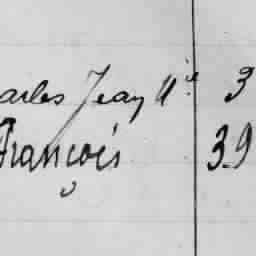 arles Jean 3
François 39